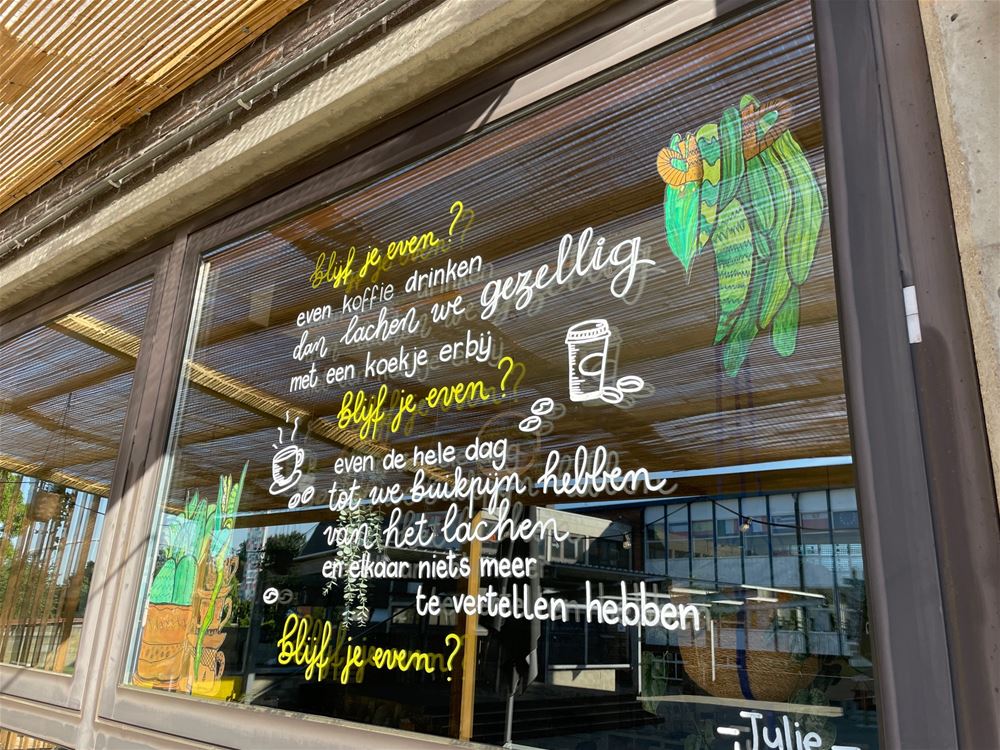 blijf je even?
even koffie drinken
dan lachen we gezellig
met een koekje erbij
blijf je even?
even de hele dag
tot we buikpijn hebben
van het lachen
en elkaar niets meer
te vertellen hebben
blijf je even?
-Julie-